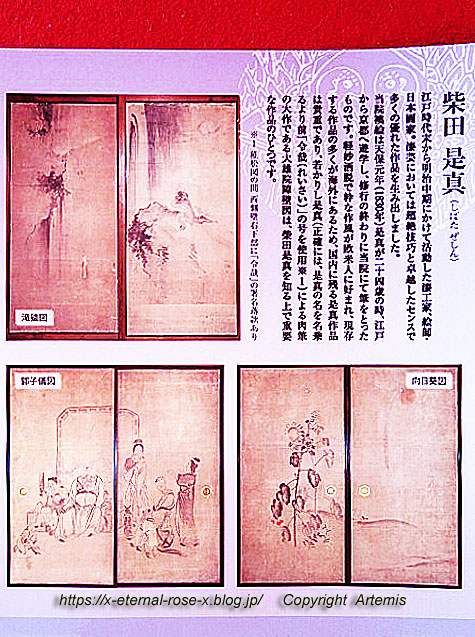 柴田 是真（しばた ぜしん）
江戸時代末から明治中期にかけて活動した漆工家、絵師・
日本画家。漆芸においては超絶技巧と卓越したセンスで
多くの優れた作品を生み出しました。
当院襖絵は天保元年（1830年）是真が二十四歳の時、江戸
から京都へ遊学し、修行の終わりに当院にて筆をとった
ものです。軽妙洒脱で粋な作風が欧米人に好まれ、現存
する作品の多くが海外にあるため、国内に残る是真作品
は貴重であり、若かりし是真（正確には、是真の名を名乗
るより前、「令哉（れいさい）」の号を使用※1）による肉筆
の大作である大雄院障壁画は、柴田是真を知る上で重要
な作品のひとつです。
※1 松図の間 西側壁右下部に「令哉」の署名落款あり
滝猿図
郭子儀図
向日葵図
https://x-eternal-rose-x.blog.jp/ Copyright Artemis